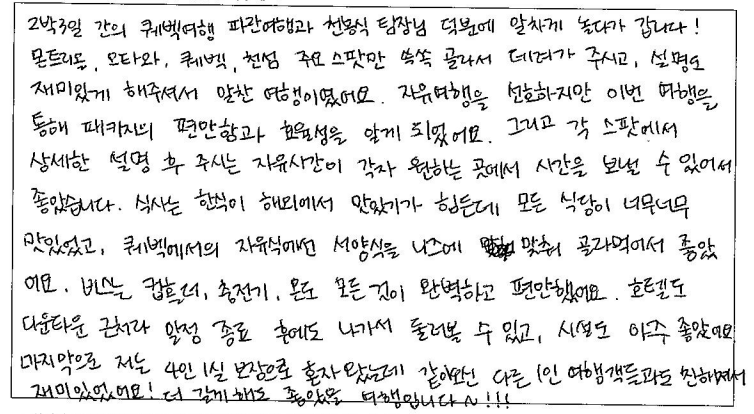 2박3일 간의 퀘벡여행 파란여행과 천봉식 팀장님 덕분에 알차게 놀다가 갑니다!
몬트리올, 오타와, 퀘벡, 천섬 주요 스팟만 쏙쏙 골라서 데려가 주시고, 설명도
재미있게 해주셔서 알찬 여행이였어요. 자유여행을 선호하지만 이번 여행을
통해 패키지의 편안함과 효율성을 알게 되었어요. 그리고 각 스팟에서
상세한 설명 후 주시는 자유시간이 각자 원하는 곳에서 시간을 보낼 수 있어서
좋았습니다. 식사는 한식이 해외에서 맛있기가 힘든데 모든 식당이 너무너무
맛있었고, 퀘벡에서의 자유식에선 서양식을 니즈에 맞춰 골라먹어서 좋았
어요. 버스는 컵홀더, 충전기, 온도 모든 것이 완벽하고 편안했어요. 호텔도
다운타운 근처라 일정 종료 후에도 나가서 둘러볼 수 있고, 시설도 아주 좋았어요
마지막으로 저는 4인 1실 보장으로 혼자 왔는데 같이오신 다른 1인 여행객들과도 친해져서
재미있었어요! 더 길게 해도 좋았을 여행입니다~!!!